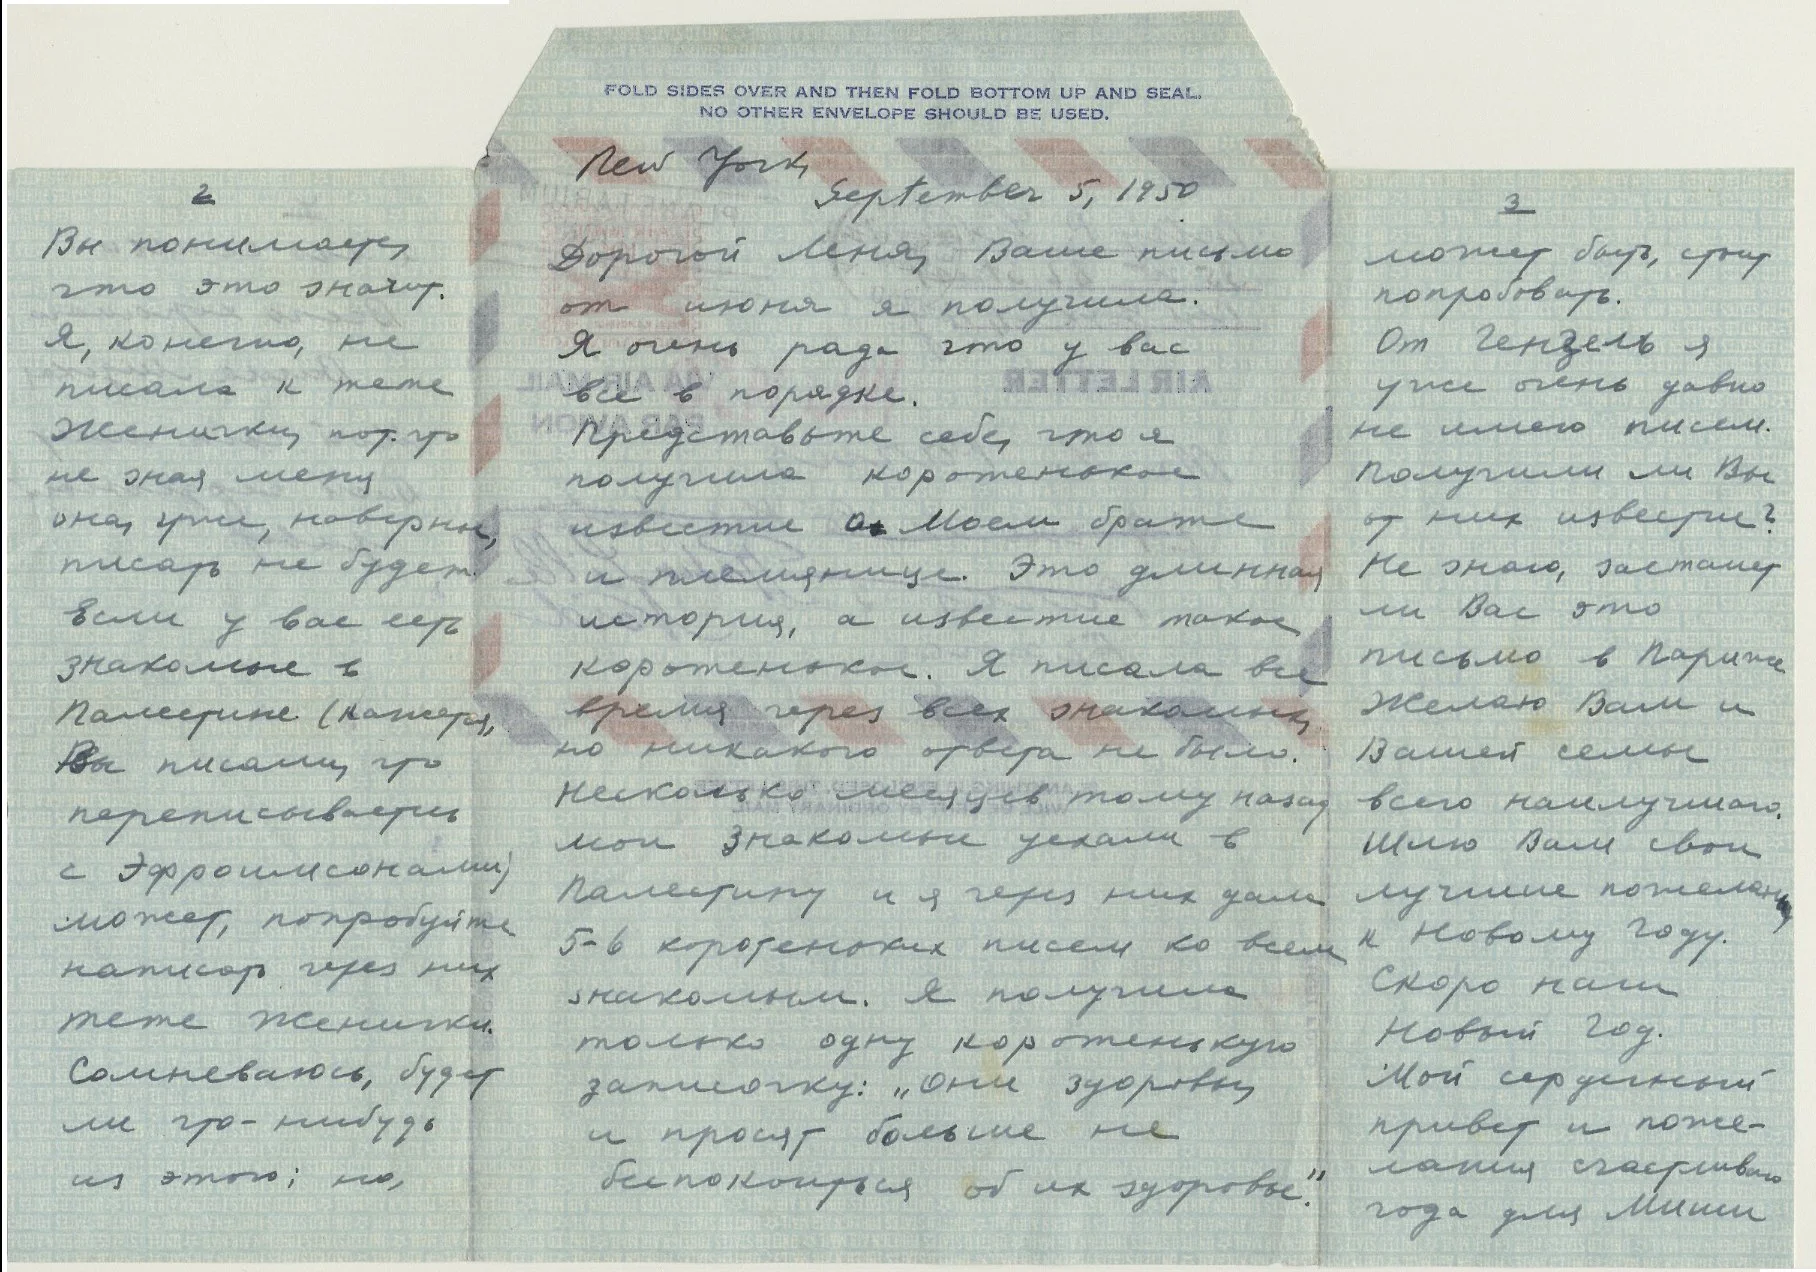 FOLD SIDES OVER AND THEN FOLD BOTTOM UP AND SEAL.
NO OTHER ENVELOPE SHOULD BE USED.
New York,
September 5, 1950
Дорогой Леня, Ваше письмо
от июня я получила.
Я очень рада что у вас
все в порядке.
Представьте себе, что я
получила коротенькое
известие о моем брате
и племяннице. Это длинная
история, а известие такое
коротенькое. Я писала все
время через всех знакомых,
но никакого ответа не было.
Несколько месяцев тому назад
мои знакомые уехали в
Палестину и я через них дала
5-6 коротеньких писем ко всем
знакомым. Я получила
только одну коротенькую
записочку: „Они здоровы,
и просят больше не
беспокоиться об их здоровье."
2
Вы понимаете,
что это значит.
Я, конечно, не
писала к тете
Женички, пот. что
не зная меня
она, уже, наверное,
писать не будет.
Если у вас есть
знакомые в
Палестине (кажется,
Вы писали, что
переписываетесь
с Эфроимсонами)
может, попробуйте
написать через них
тете Женички.
Сомневаюсь, будет
ли что-нибудь
из этого; но,
3
может быть, стоит
попробовать.
От Гензель я
уже очень давно
не имею писем.
Получили ли Вы
от них известие?
Не знаю, застанет
ли Вас это
письмо в Париже
Желаю Вам и
Вашей семье
всего наилучшего.
Шлю Вам свои
лучшие пожелания
к Новому Году.
Скоро наш
Новый Год.
Мой сердечный
привет и поже-
лания счастливого
года для Миши